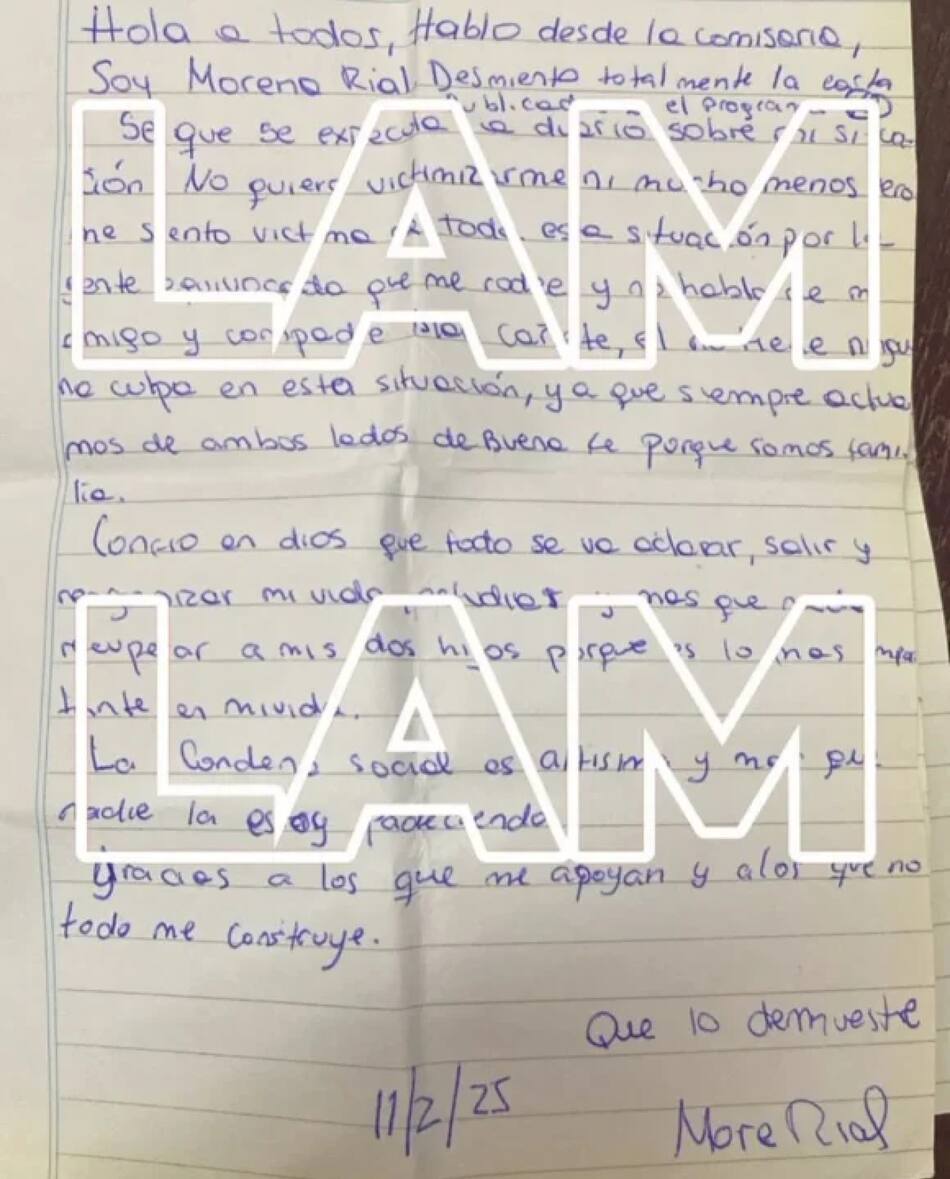 Hola a todos, Hablo desde la comisaria,
Soy Morena Rial Desmiento totalmente la carta
Publicad el program
Se que se expecula a diario sobre mi situa-
ción No quiero victimizarme ni mucho menos pero
me siento victima de toda esa situación por la
gente equivocada que me rodee y no hablo de mi
amigo y compadre cañete, el no tiene ningu
na culpa en esta situación, ya que siempre actua
mos de ambos lados de Buena fe porque somos fami-
lia.
Confio en dios que todo se va aclarar, salir y
reorganizar mi vida, estudiar y mas que
recuperar a mis dos hijos porque es lo mas impor
tante en mi vida.
La Condena social es altisima y mas que
nadie la estoy padeciendo
gracias a los que me apoyan y a los que no
todo me construye.
Que lo demuestre
11/2/25
More Rial
LAM
LAM